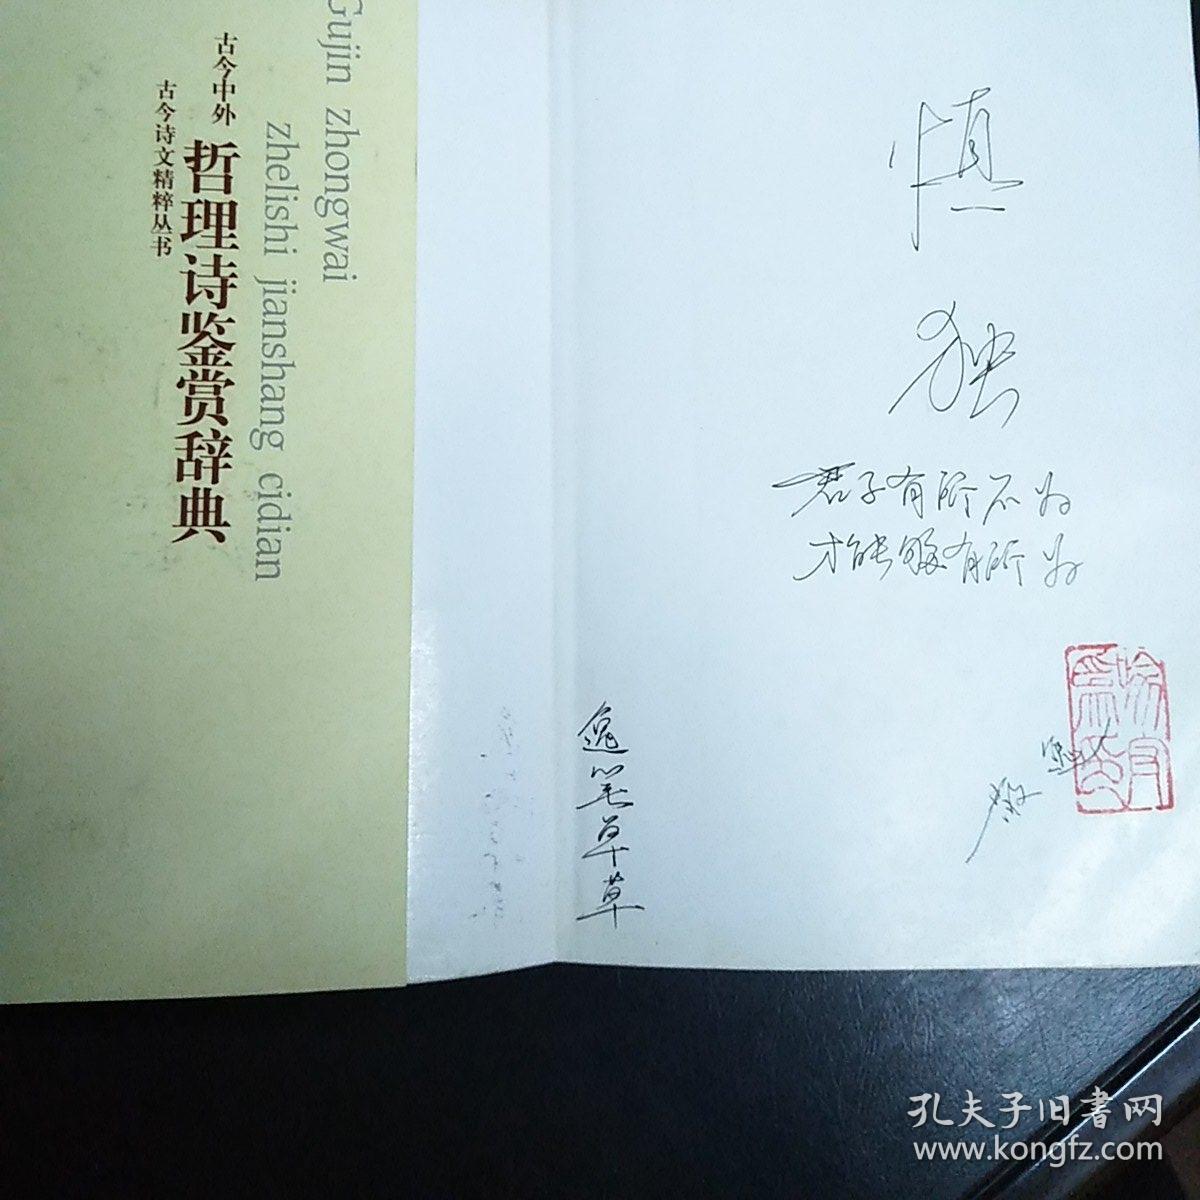 古今中外
哲理诗鉴赏辞典
古今诗文精粹丛书
Gujin zhongwai
zhelishi jianshang cidian
慎
独
君子有所不为
才能够有所为
逸笔草草
孔夫子旧书网
www.kongfz.com